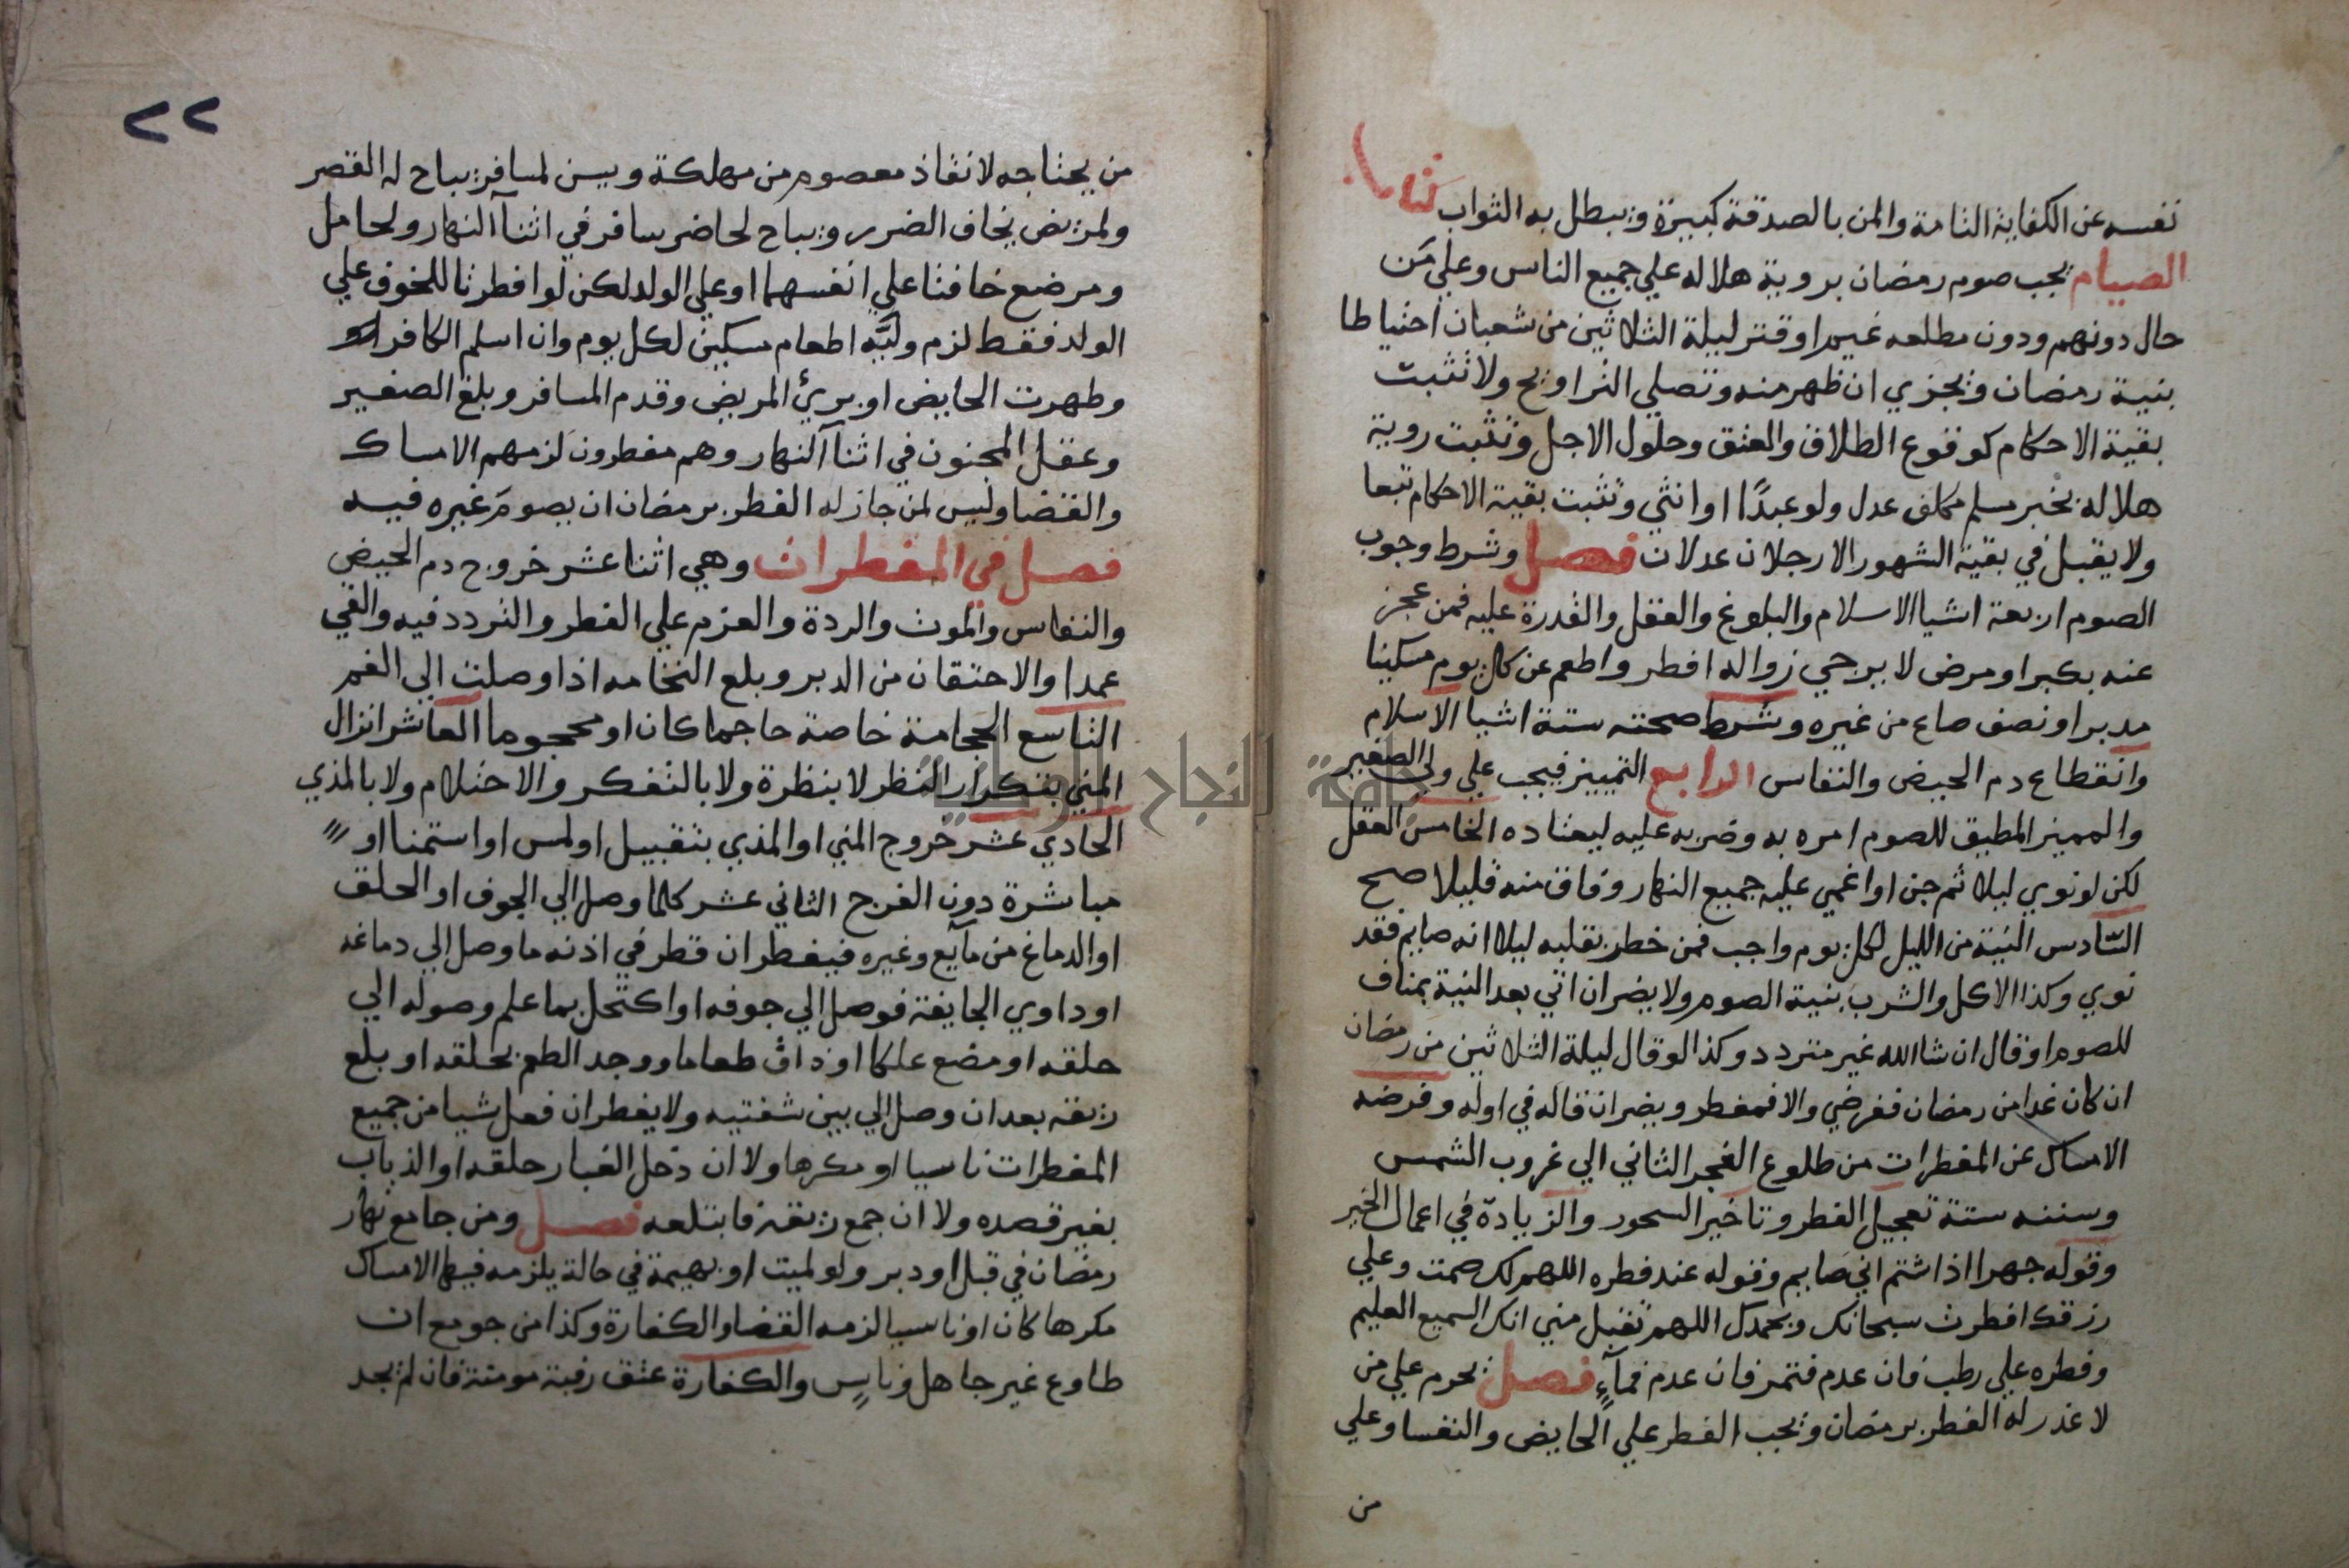 نفسه عن الكفاية التامة والمن بالصدقة كبيرة ويبطل به الثواب كتاب
الصيام يجب صوم رمضان بروية هلاله علي جميع الناس وعلي من
حال دونهم ودون مطلعه غيم او قتر ليلة الثلاثين من شعبان احتياطا
بنية رمضان ويجزي ان ظهر منه وتصلي التراويح ولا تثبت
بقية الاحكام كوقوع الطلاق والعتق وحلول الاجل وتثبت روية
هلاله بخبر مسلم مكلف عدل ولو عبدًا او انثي وتثبت بقية الاحكام تبعا
ولا يقبل في بقية الشهور الا رجلان عدلان فصل وشرط وجوب
الصوم اربعة اشيا الاسلام والبلوغ والعقل والقدرة عليه فمن عجز
عنه بكبر او مرض لا يرجي زواله افطر واطعم عن كل يوم مسكينا
مد بر او نصف صاع من غيره وشرط صحته ستة اشيا الاسلام
وانقطاع دم الحيض والنفاس الرابع التمييز فيجب علي ولي الصغير
والمميز المطيق للصوم امره به وضربه عليه ليعتاده الخامس العقل
لكن لو نوي ليلا ثم جن او اغمي عليه جميع النهار وفاق منه قليلا صح
السّادس النية من الليل لكل يوم واجب فمن خطر بقلبه ليلا انه صايم فقد
نوي وكذا الاكل والشرب بنية الصوم ولا يضر ان اتي بعد النية بمناف
للصوم او قال ان شا الله غير متردد وكذا لو قال ليلة الثلاثين من رمضان
ان كان غدا من رمضان ففرضي والا فمفطر ويضر ان قاله في اوله وفرضه
الامساك عن المفطرات من طلوع الفجر الثاني الي غروب الشمس
وسننه ستة تعجيل الفطر وتاخير السحور والزيادة في اعمال الخير
وقوله جهرا اذا شتم اني صايم وقوله عند فطره اللهم لك صمت وعلي
رزقك افطرت سبحانك وبحمدك اللهم تقبل مني انك السميع العليم
وفطره علي رطب فان عدم فتمر فان عدم فمآءٍ فصل يحرم علي من
لا عذر له الفطر برمضان ويجب الفطر علي الحايض والنفسا وعلي
من
٢٢
من يحتاجه لانقاذ معصوم من مهلكة ويسن لمسافر يباح له القصر
ولمريض يخاف الضرر ويباح لحاضر سافر في اثنآ النهار ولحامل
ومرضع خافتا علي انفسهما او علي الولد لكن لو افطرتا للخوف علي
الولد فقط لزم وليَّه اطعام مسكين لكل يوم وان اسلم الكافر او
وطهرت الحايض او برئ المريض وقدم المسافر وبلغ الصغير
وعقل المجنون في اثنآ النهار وهم مفطرون لزمهم الامساك
والقضا وليس لمن جاز له الفطر برمضان ان يصوم غيره فيه
فصل في المفطرات وهي اثنا عشر خروج دم الحيض
والنفاس والموت والردة والعزم علي الفطر والتردد فيه والقي
عمدا والاحتقان من الدبر وبلع النخامه اذا وصلت الي الفم
التاسع الحجامة خاصة حاجما كان او محجوما العاشر انزال
المني بتكرار النظر لا بنظرة ولا بالتفكر والاحتلام ولا بالمذي
الحادي عشر خروج المني او المذي بتقبيل او لمس او استمنا او
مباشرة دون الفرج الثاني عشر كلما وصل الي الجوف او الحلق
او الدماغ من مآيع وغيره فيفطر ان قطر في اذنه ما وصل الي دماغه
او داوي الجايفة فوصل الي جوفه او اكتحل بما علم وصوله الي
حلقه او مضغ علكا او ذاق طعاما ووجد الطعم بحلقه او بلع
ريقه بعد ان وصل الي بين شفتيه ولا يفطر ان فعل شيا من جميع
المفطرات ناسيا او مكرها ولا ان دخل الغبار حلقه او الذباب
بغير قصده ولا ان جمع ريقه فابتلعه فصل ومن جامع نهار
رمضان في قبل او دبر ولو لميت او بهيمة في حالة يلزمه فيها الامساك
مكرها كان او ناسيا لزمه القضا والكفارة وكذا من جومع ان
طاوع غير جاهل وناسٍ والكفارة عتق رقبة مومنة فان لم يجد
جامعة النجاح الوطنية